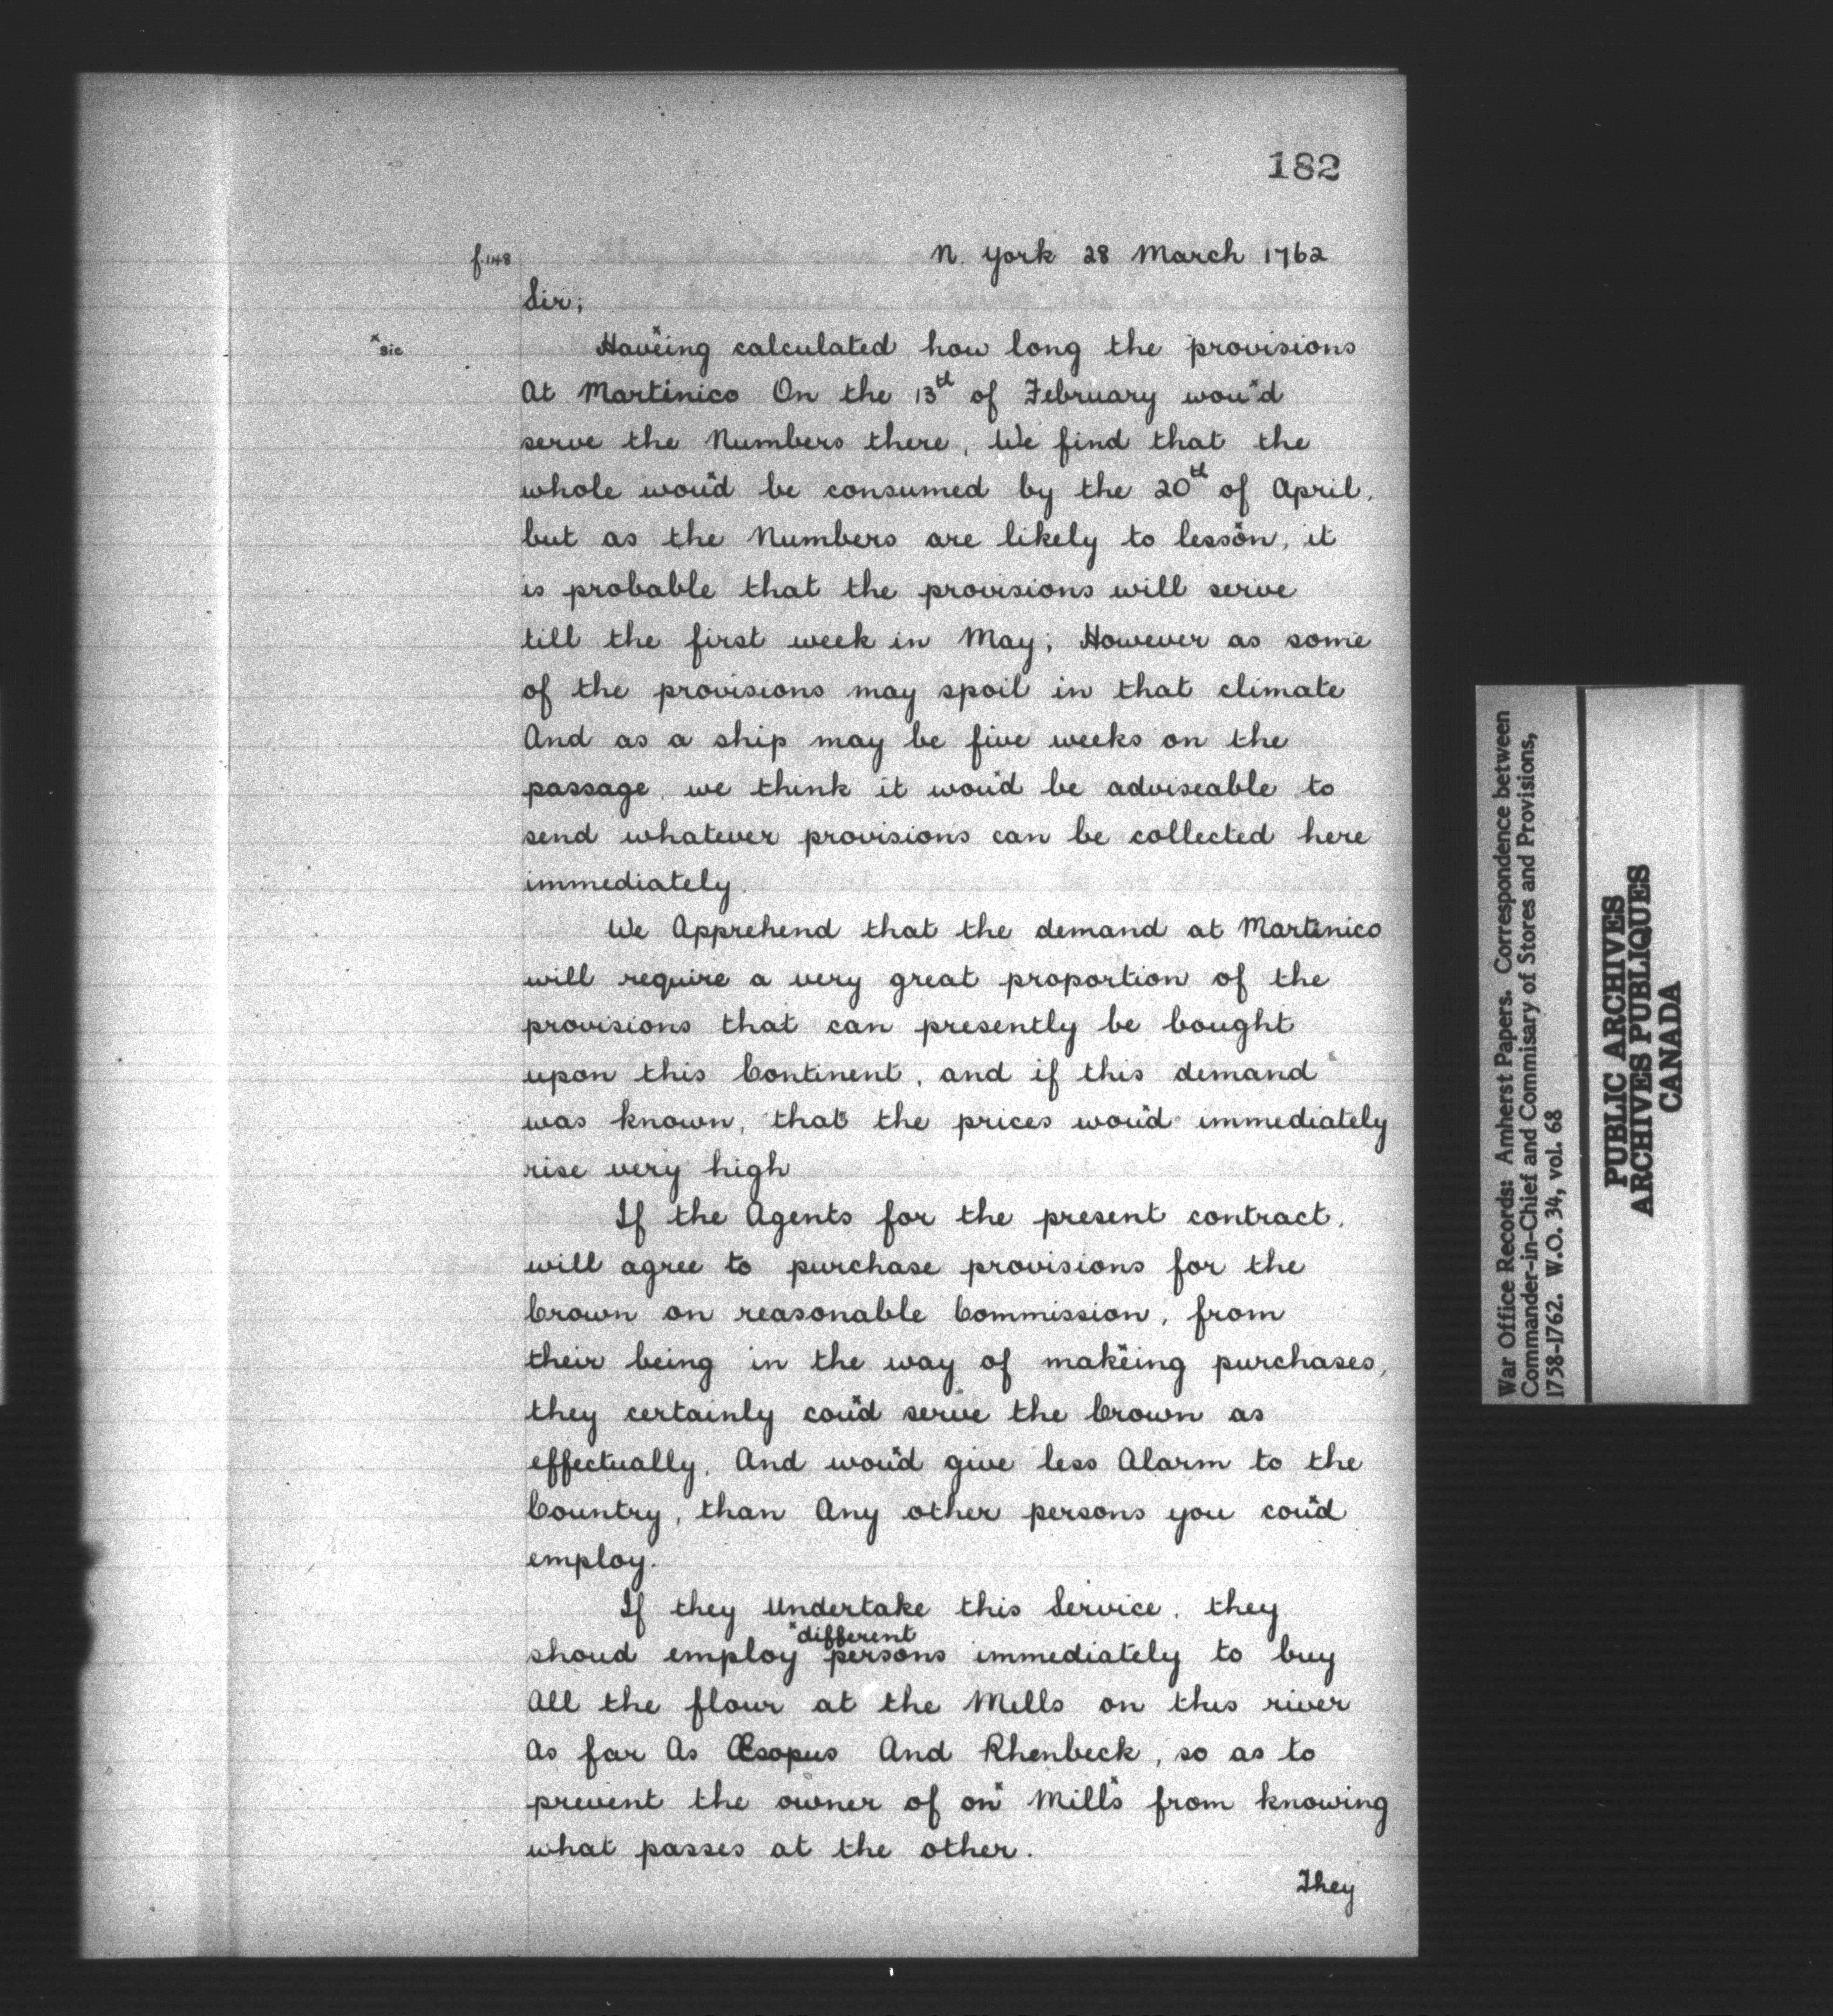 182
f.148
N. York 28 March 1762
Sir;
x sic
Haveing calculated how long the provisions
At Martinico On the 13th of February wou'd
serve the Numbers there, We find that the
whole wou'd be consumed by the 20th of April,
but as the Numbers are likely to lesson, it
is probable that the provisions will serve
till the first week in May; However as some
of the provisions may spoil in that climate
And as a ship may be five weeks on the
passage, we think it wou'd be adviseable to
send whatever provisions can be collected here
immediately.
We Apprehend that the demand at Martinico
will require a very great proportion of the
provisions that can presently be bought
upon this Continent, and if this demand
was known, that the prices wou'd immediately
rise very high
If the Agents for the present contract,
will agree to purchase provisions for the
Crown on reasonable Commission, from
their being in the way of makeing purchases,
they certainly cou'd serve the Crown as
effectually, And wou'd give less Alarm to the
Country, than Any other persons you cou'd
employ.
If they Undertake this Service, they
x different
shoud employ persons immediately to buy
All the flour at the Mills on this river
As far As Æsopus And Rhenbeck, so as to
prevent the owner of onx Millsx from knowing
what passes at the other.
They
War Office Records: Amherst Papers. Correspondence between
Commander-in-Chief and Commisary of Stores and Provisions,
1758-1762. W.O. 34, vol. 68
PUBLIC ARCHIVES
ARCHIVES PUBLIQUES
CANADA